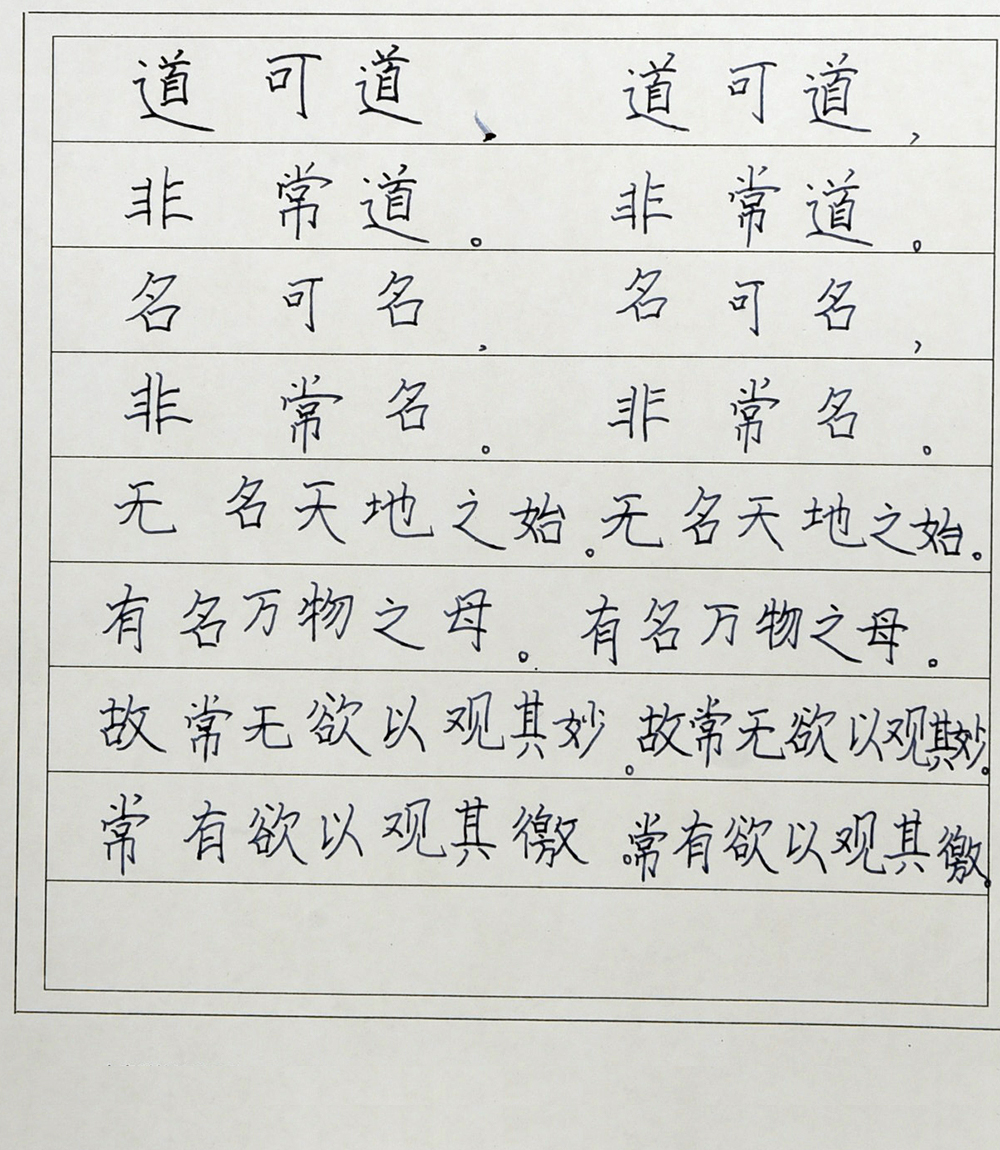 道可道、道可道,
非常道。非常道。
名可名,名可名,
非常名。非常名。
无名天地之始。无名天地之始。
有名万物之母。有名万物之母。
故常无欲以观其妙。故常无欲以观其妙。
常有欲以观其徼。常有欲以观其徼。